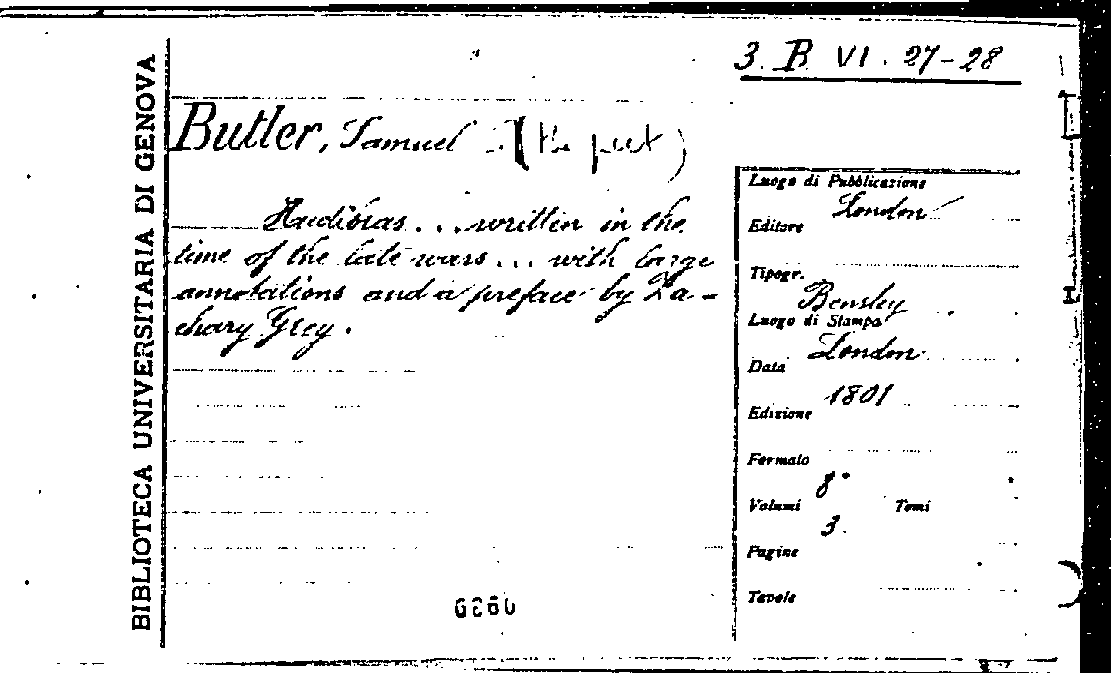 3. B VI. 27-28
BIBLIOTECA UNIVERSITARIA DI GENOVA
Butler, Samuel (the poet)
Hudibras... written in the
time of the late wars... with large
annotations and a preface by Za-
chary Grey.
Luogo di Pubblicazione
London
Editore
Tipogr.
Bensley
Luogo di Stampa
London
Data
1801
Edizione
Formato
8°
Volumi Tomi
3.
Pagine
Tavole